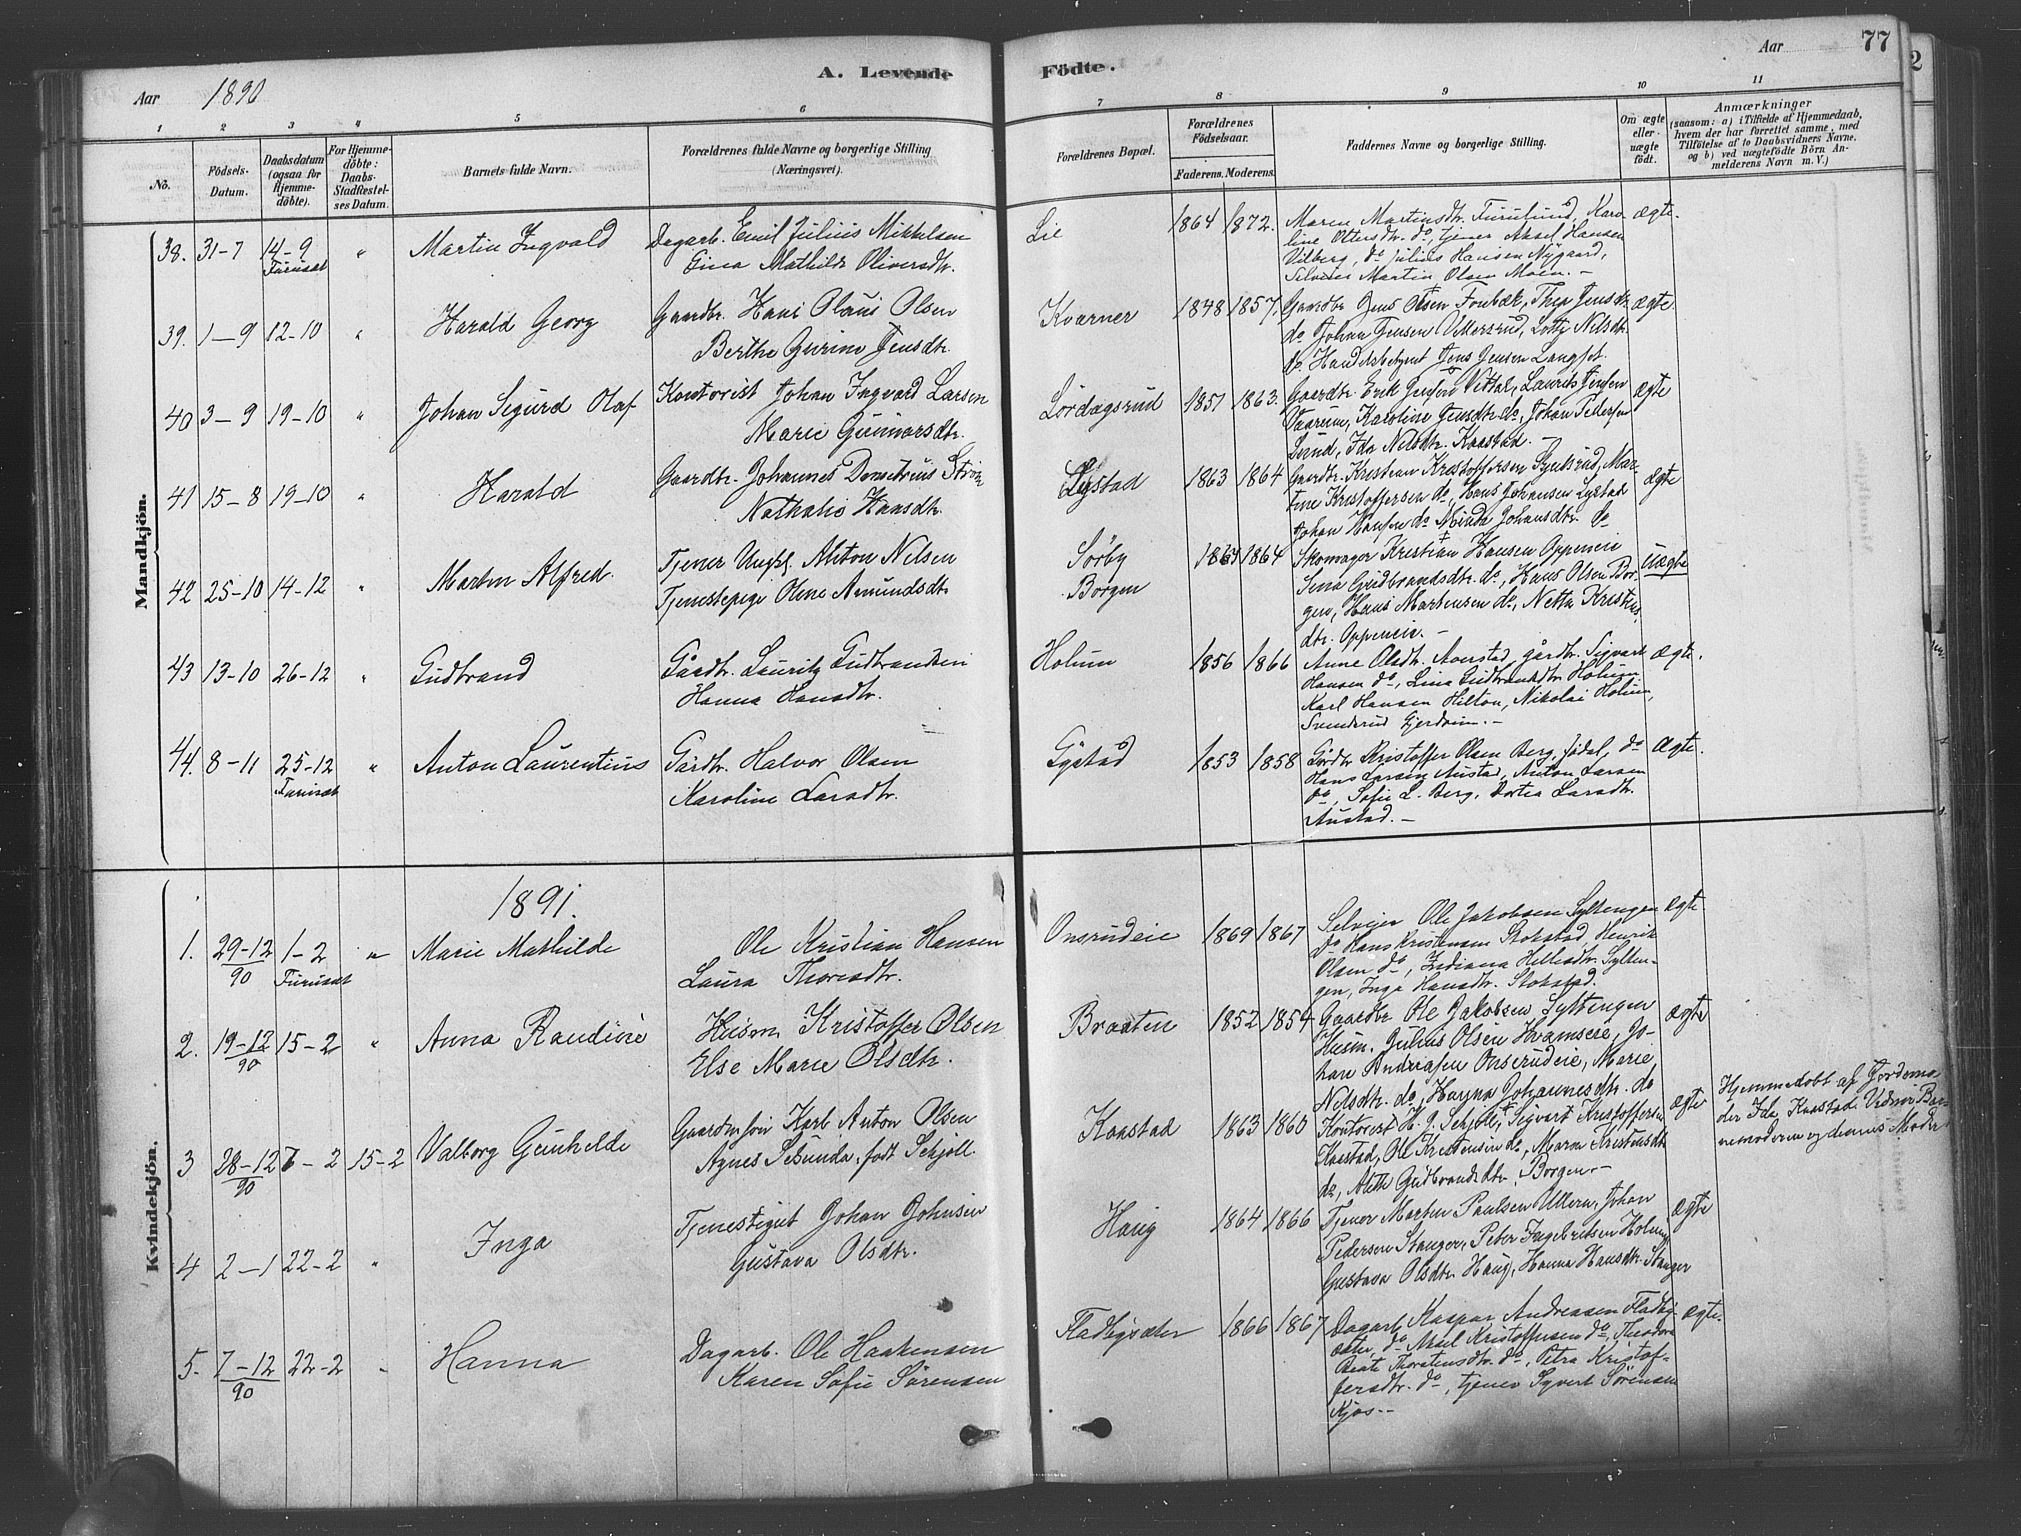 A. Levende Födte.
Aar 1890
Aar 77
1 2 3 4 5 6 7 8 9 10 11
No.
Födsels-Datum.
Daabsdatum (ogsaa for hjemmedöbte).
For Hjemmedöbte: Daabs-Stadfæstelses Datum.
Barnets fulde Navn.
Forældrenes fulde Navne og borgerlige Stilling (Næringsvei).
Forældrenes Bopæl.
Forældrenes Födselsaar.
Faderens. Moderens.
Faddernes Navne og borgerlige Stilling.
Om ægte eller uægte födt.
Anmærkninger (saasom: a) i Tilfælde af Hjemmedaab, hvem der har forrettet samme, med Tilföielse af to Daabsvidners Navne, og b) ved uægtefödte Börn Anmelderens Navn m. V.)
Mandkjön.
38. 31-7 14-9 Furuset " Martin Ingvald
Dagarb. Emil Julius Mikkelsen
Gina Mathilde Oliversdtr.
Lie 1864 1872.
Maren Martinsdtr. Furulund, Karo-
line Ottersdtr. do, tjener Aksel Hansen
Vilberg, do Julius Hansen Nygaard,
Selveier Martin Olsen Moen. -
ægte.
39. 1-9 12-10 " Harald Georg
Gaardbr. Hans Olaus Olsen
Berthe Gurine Jensdtr.
Kværner 1848 1857.
Gaardbr Jens Olsen Fonbæk, Thea Jensdtr
do Johan Jensen Ullersrud, Lotte Nilsdtr.
do Handelsbetjent Jens Jensen Langset.
ægte.
40 3-9 19-10 " Johan Sigurd Olaf
Kontorist Johan Ingvard Larsen
Marie Gunnarsdtr.
Lördagsrud 1851 1863.
Gaardbr. Erik Jensen Vittal, Laurits Jensen
Vaarum, Karoline Jensdtr. do, Johan Pedersen
Lund, Ida Nilsdtr. Kaastad. -
ægte
41 15-8 19-10 " Harald
Gaardbr. Johannes Demetrius Ström
Nathalie Hansdtr.
Lystad 1863 1864
Gaardbr. Kristian Kristoffersen Sjulsrud, Mar-
tine Kristoffersen do, Hans Johansen Lystad
Johan Hansen do Minda Johansdtr. do
ægte
42 25-10 14-12 " Martin Alfred.
Tjener Ungk. Anton Nilsen
Tjenestepige Oline Amundsdtr
Sörby
Borgen
1864 1864
Skomager Kristian Hansen Oppeneie
Lena Gudbrandsdtr. do, Hans Olsen Bor-
gen, Hans Martinsen do, Netta Kristens
dtr. Oppeneie. -
Uægte
43 13-10 26-12 " Gudbrand
Gårdbr. Lauritz Gudbrandsen
Hanna Hansdtr.
Holum 1856 1866
Anne Olsdtr. Averstad, gårdbr. Sigvart
Hansen do, Lina Gudbrandsdtr Holum
Karl Hansen Hilton, Nikolai Holum,
Svenderud Gjerdrum. -
ægte.
44. 8-11 25-12 Furuset " Anton Laurentius
Gårdbr. Halvor Olsen
Karoline Larsdtr.
Gystad 1853 1858
Gårdbr Kristoffer Olsen Berg, födal, do
Hans Larsen Austad, Anton Larsen
do, Sofie L. Berg, Dortea Larsdtr.
Austad. -
ægte.
Kvindekjön.
1891.
1. 29-12/90 1-2 Furuset " Marie Mathilde
Ole Kristian Hansen
Laura Thoresdtr.
Onsrudeie 1869 1867
Selveier Ole Jakobsen Syltengen
do Hans Kristensen Stokstad, Henrik
Olsen do, Indiana Hellesdtr. Sylten-
gen, Inga Hansdtr. Stokstad.
ægte
2. 19-12/90 15-2 " Anna Randine
Husm. Kristoffer Olsen
Else Marie Olsdtr.
Braaten 1852 1854
Gaardbr Ole Jakobsen Syltengen
Husm. Julius Olsen Kvamseie, Jo-
han Andreasen Onsrudeie, Marie
Nilsdtr. do, Hanna Johannesdtr. do
ægte
3 28-12/90 7-2 15-2 Valborg Gunhelde
Gaardmsön Karl Anton Olsen
Agnes Sekunda, födt Schjöll.
Kaastad 1863 1860
Kontorist H. J. Schjöll, Sigvart Kristoffersen
Kaastad, Ole Kristensen do, Maren Kristensdtr
do, Aleth Gudbrandsdtr. Borgen -
ægte
Hjemmedöbt af Jordemo-
der Ida Kaastad. Vidner Bar-
nemoderen og dennes Moder
4 2-1 22-2 " Inga
Tjenestegut Johan Johnsen
Gustava Olsdtr.
Haug 1864 1866
Tjener Martin Paulsen Ullern, Johan
Pedersen Stanger, Peter Ingebritsen Holum
Gustava Olsdtr Haug, Hanna Hansdtr. Stanger
ægte
5. 7-12/90 22-2 " Hanna
Dagarb. Ole Haakensen
Karen Sofie Sörensen
Fladbysæter 1866 1867
Dagarb. Kaspar Andreasen Fladby-
sæter, do Aksel Kristoffersen do, Theodora
Beate Thorstensdtr. do, Petra Kristof-
fersdtr. do, tjener Syvert Sörensen
Kjos. -
ægte.